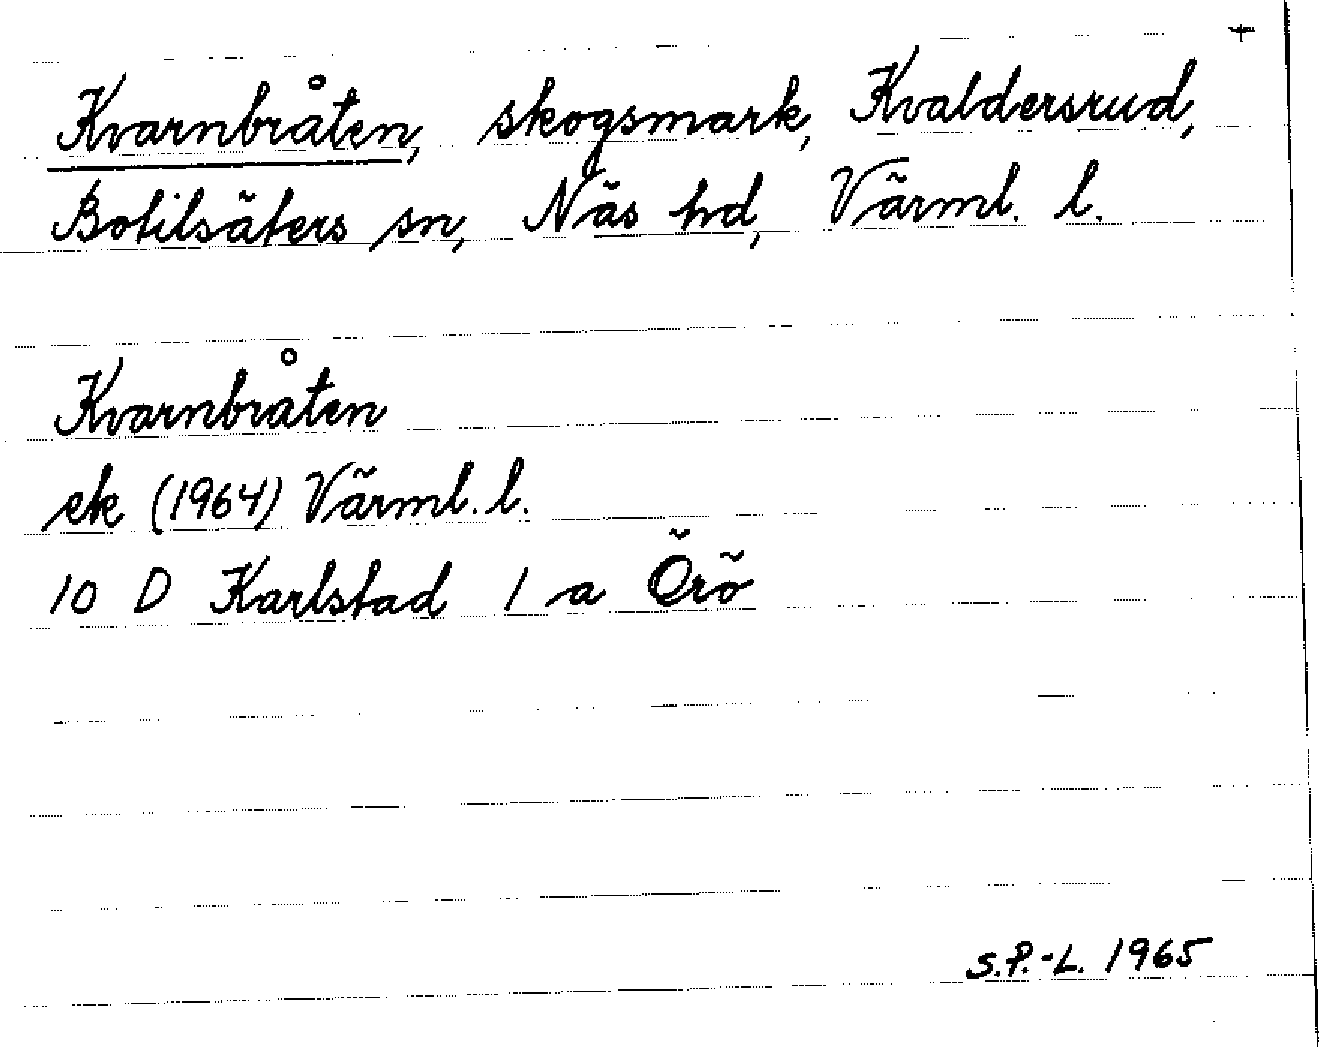 +
Kvarnbråten, skogsmark, Kvaldersrud,
Botilsäters sn, Näs hd, Värml. l.
Kvarnbråten
ek (1964) Värml. l.
10 D Karlstad 1 a Örö
S.P.-L. 1965